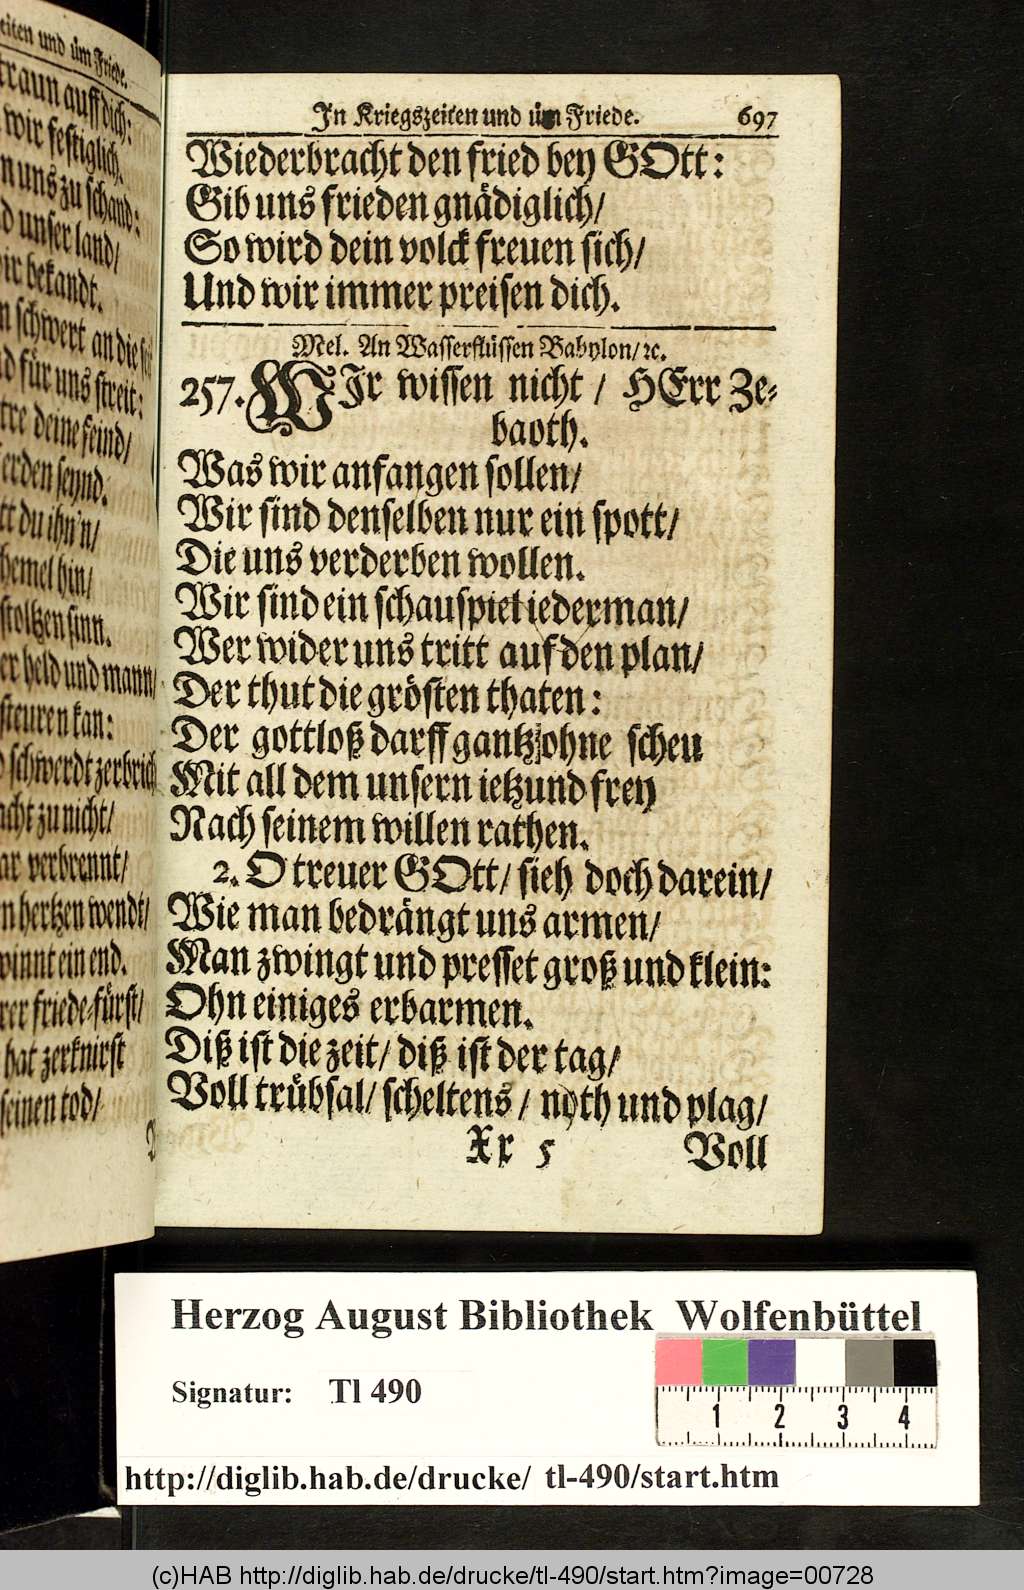 eiten und üm Friede.
traun auff dich:
wir festiglich.
n uns zu schand:
d unser land/
ir bekandt.
n schwert an die
d für uns streit:
tre deine feind/
erden seynd.
tt du ihn'n/
hemel hin/
stoltzen sinn.
er held und mann/
steuren kan:
schwerdt zerbrich
acht zu nicht/
ar verbrennt/
n hertzen wendt/
winnt ein end.
rer friede-fürst/
hat zerknirst
seinen tod/
In Kriegszeiten und üm Friede. 697
Wiederbracht den fried bey GOtt:
Gib uns frieden gnädiglich/
So wird dein volck freuen sich/
Und wir immer preisen dich.
Mel. An Wasserflüssen Babylon/ ꝛc.
257. WIr wissen nicht / HErr Ze-
baoth.
Was wir anfangen sollen/
Wir sind denselben nur ein spott/
Die uns verderben wollen.
Wir sind ein schauspiel iederman/
Wer wider uns tritt auf den plan/
Der thut die grösten thaten:
Der gottloß darff gantz ohne scheu
Mit all dem unsern ietzund frey
Nach seinem willen rathen.
2. O treuer GOtt/ sieh doch darein/
Wie man bedrängt uns armen/
Man zwingt und presset groß und klein:
Ohn einiges erbarmen.
Diß ist die zeit/ diß ist der tag/
Voll trübsal/ scheltens / noth und plag/
Xx 5 Voll
Herzog August Bibliothek Wolfenbüttel
Signatur: Tl 490
1 2 3 4
http://diglib.hab.de/drucke/ tl-490/start.htm
(c)HAB http://diglib.hab.de/drucke/tl-490/start.htm?image=00728